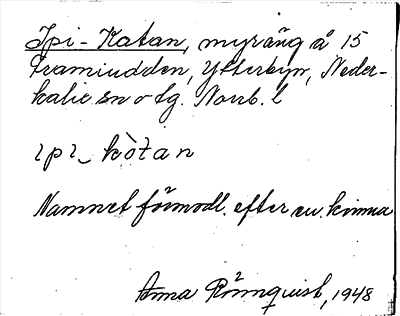 Ipi-Katan, myräng å 15
Framiudden, Ytterbyn, Neder-
kalix sn o tg. Norrb. l
ɩpɩ_ kò̀tan
Namnet förmodl. efter en kvinna
Anna Rönnquist, 1948